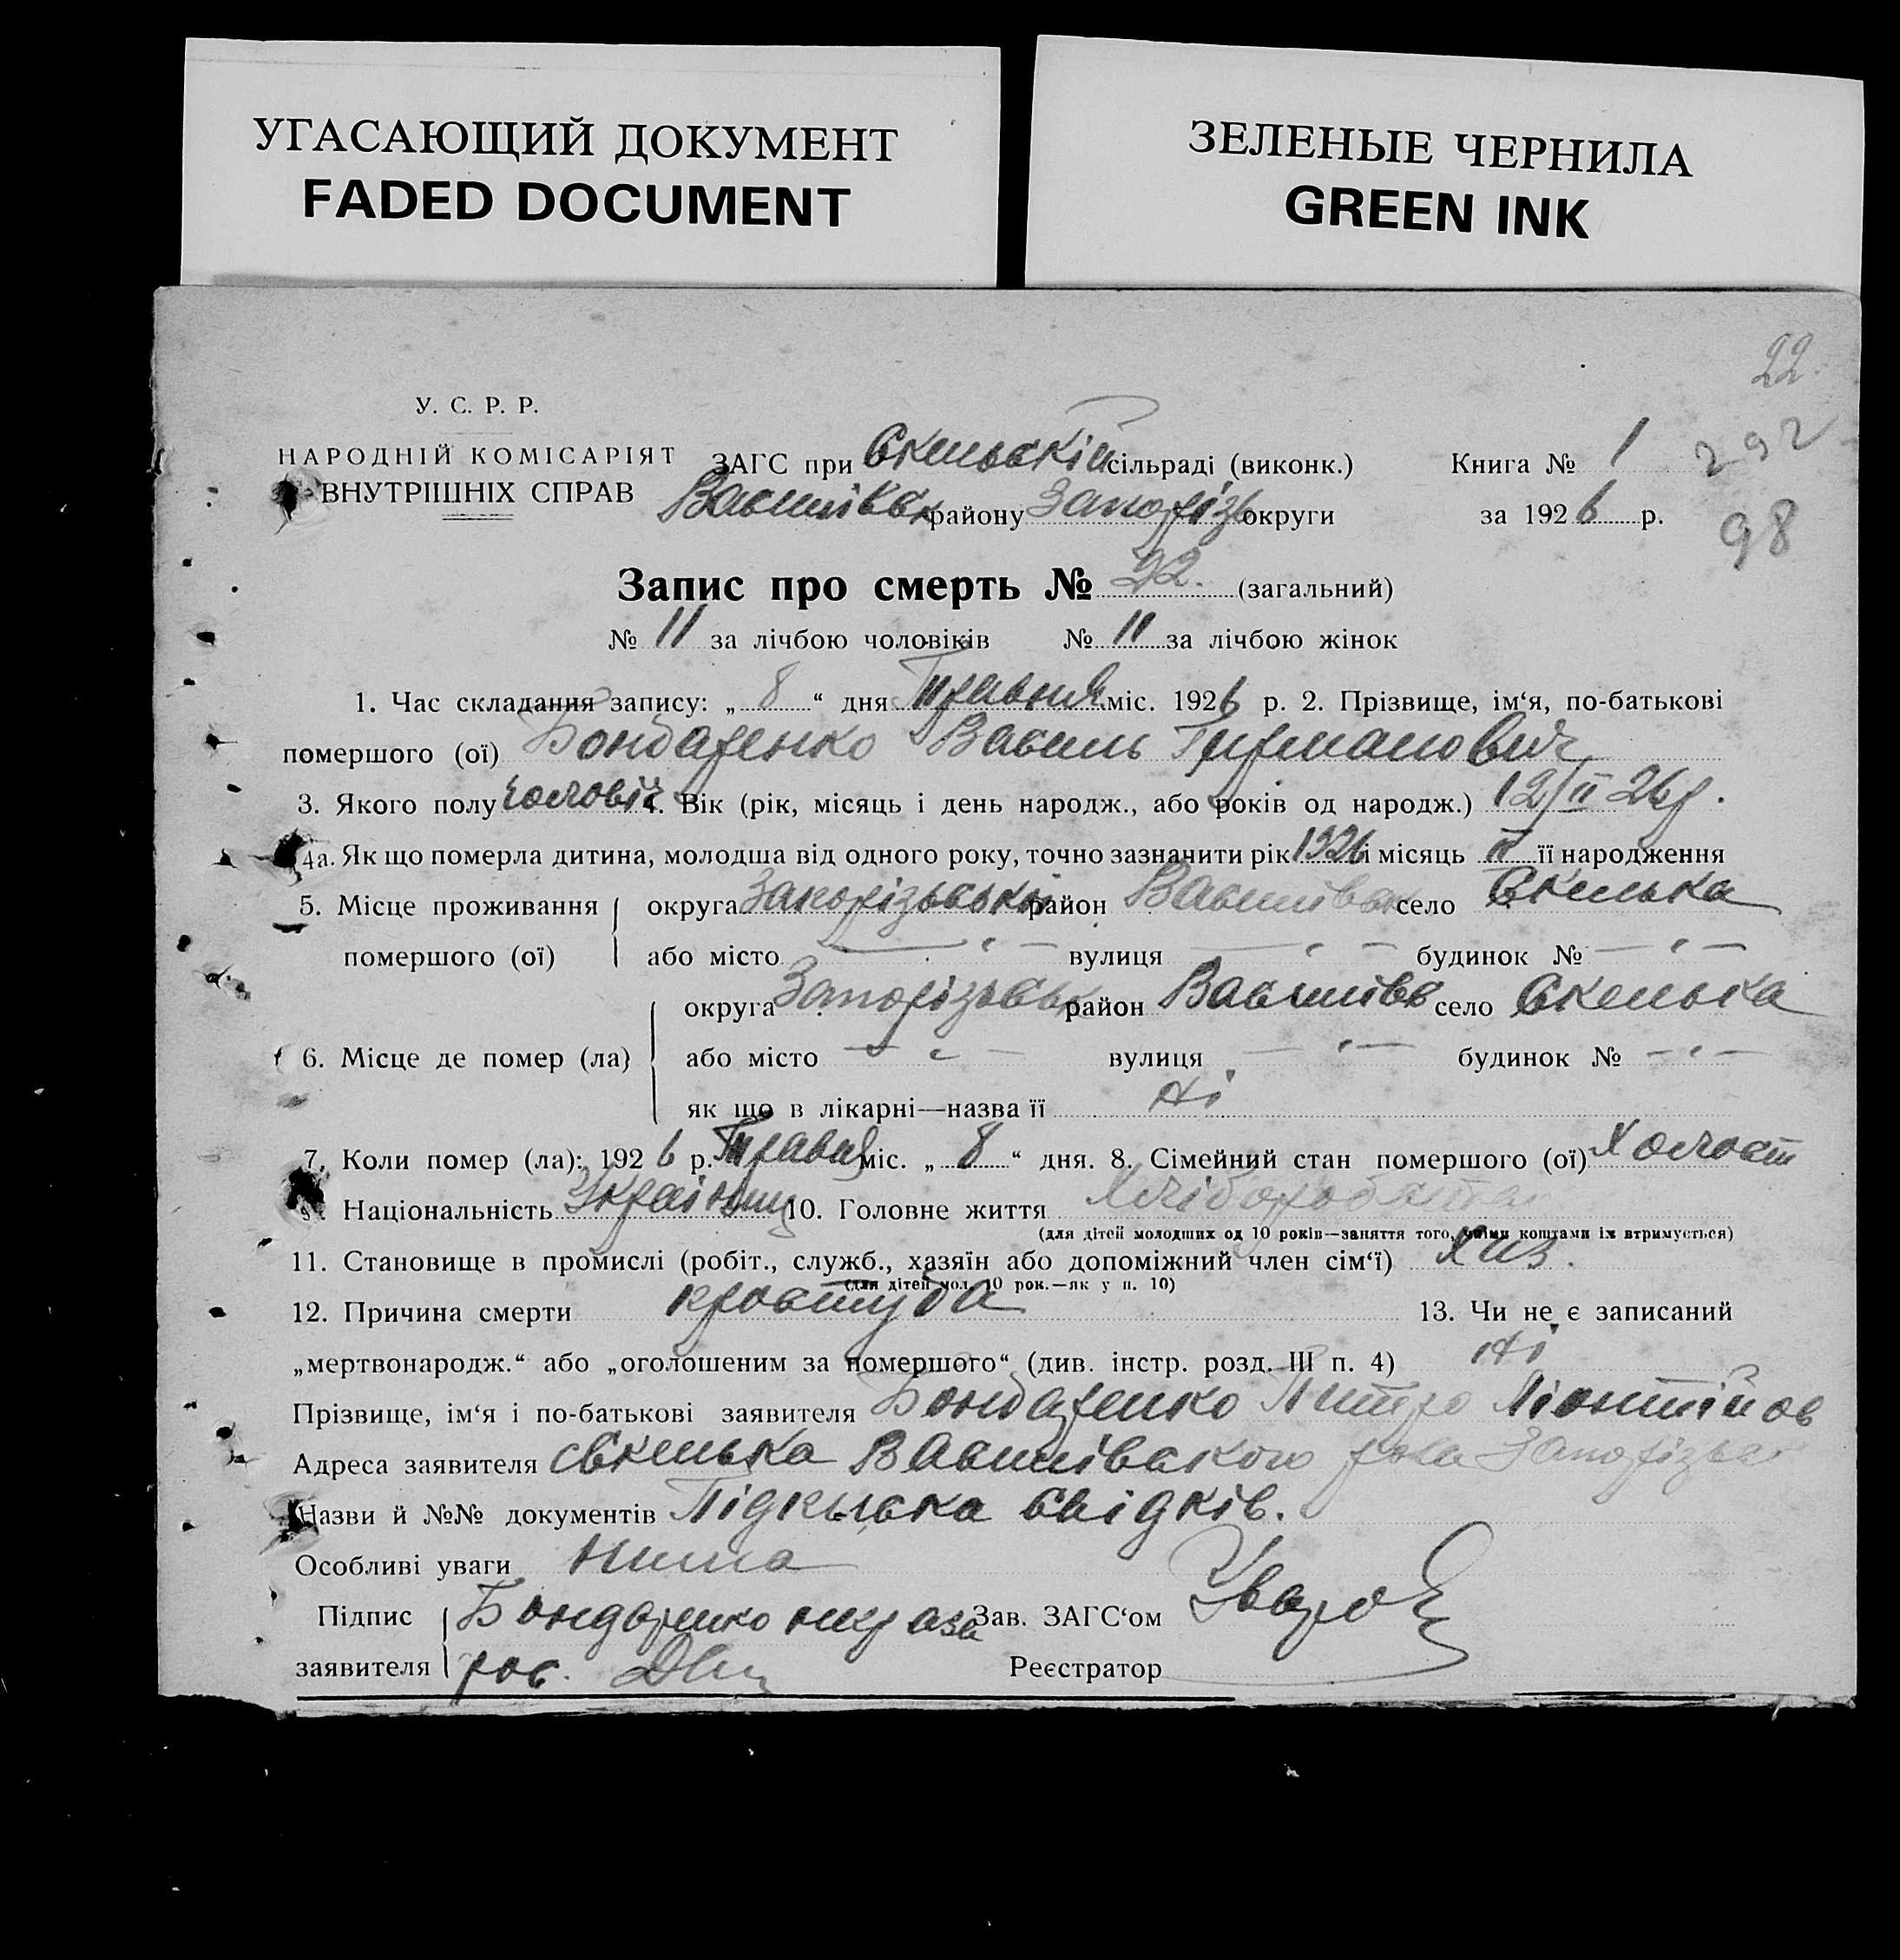 УГАСАЮЩИЙ ДОКУМЕНТ
FADED DOCUMENT
ЗЕЛЕНЫЕ ЧЕРНИЛА
GREEN INK
22
292
98
У. С. Р. Р.
НАРОДНІЙ КОМІСАРІЯТ
ВНУТРІШНІХ СПРАВ
ЗАГС при Скельській сільраді (виконк.) Книга № 1
Василівськ району Запоріз округи за 1926 р.
Запис про смерть № 22. (загальний)
№ 11 за лічбою чоловіків № 11 за лічбою жінок
1. Час складання запису: „ 8 “ дня Травня міс. 1926 р. 2. Прізвище, ім‘я, по-батькові
помершого (ої) Бондаренко Василь
3. Якого полу чоловіч 4. Вік (рік, місяць і день народж., або років од народж.) 12/II 26р.
4а. Як що померла дитина, молодша від одного року, точно зазначити рік 1926 і місяць II її народження
5. Місце проживання помершого (ої) округа Запорізської район Василівськ село Скелька
або місто — " — вулиця — " — будинок № — " —
6. Місце де помер (ла) округа Запорізськ район Василівс село Скелька
або місто — " — вулиця — " — будинок № — " —
як що в лікарні—назва її Ні
7. Коли помер (ла): 1926 р. Травня міс. „ 8 “ дня. 8. Сімейний стан помершого (ої) Холост
9. Національність Українець 10. Головне життя Хлібороб
(для дітей молодших од 10 років—заняття того, чиїми коштами їх втримується)
11. Становище в промислі (робіт., служб., хазяїн або допоміжний член сім‘ї) Хаз.
(для дітей мол. 10 рок.—як у п. 10)
12. Причина смерти простуда 13. Чи не є записаний
„мертвонародж.“ або „оголошеним за помершого“ (див. інстр. розд. III п. 4) Ні
Прізвище, ім‘я і по-батькові заявителя Бондаренко
Адреса заявителя Скелька Василівського Запорізьк
Назви й №№ документів свідків.
Особливі уваги Нима
Підпис заявителя Бондаренко
Зав. ЗАГС‘ом
Реєстратор